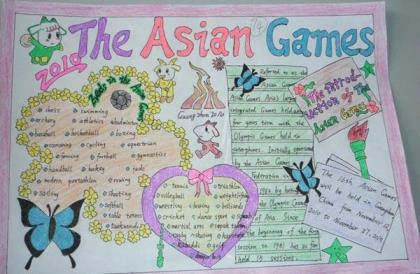 The Asian Games
2010
chess swimming
archery athletics badminton
baseball basketball boxing
canoeing cycling equestrian
fencing football gymnastics
handball hockey judo
modern pentathlon rowing
sailing shooting
softball
table tennis
taekwondo
tennis triathlon
volleyball weightlifting
wrestling bowling
cricket dance sport
martial arts
Referred to as the
Asian Games, Asia's largest
integrated Games held every
four years
Olympic Games held in
Initially sponsored
by the Asian Games
Federation
the Olympic Council
of Asia. Since
the beginning of the first
session in 1951 has so far
held 15 sessions.
The Introd-
uction of The
Asian Games
The 16th Asian Games
will be held in Guangzhou
China from November 12
2010 to November 27, 2010